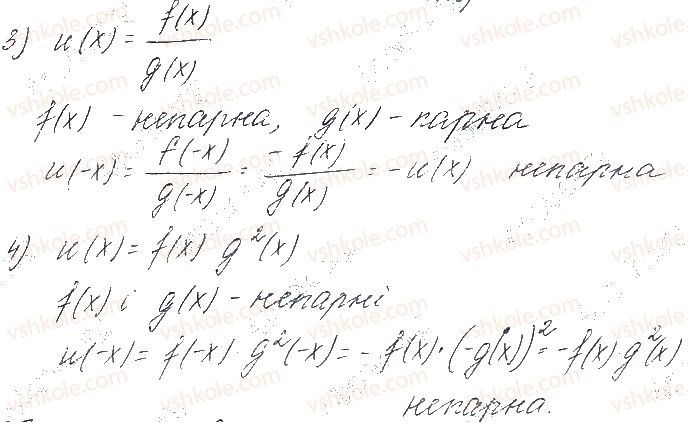 3) u(x) = f(x) / g(x)
f(x) - непарна, g(x) - парна
u(-x) = f(-x) / g(-x) = -f(x) / g(x) = -u(x) непарна
4) u(x) = f(x) g²(x)
f(x) і g(x) - непарні
u(-x) = f(-x) g²(-x) = -f(x)·(-g(x))² = -f(x) g²(x)
непарна.
vshkole.com